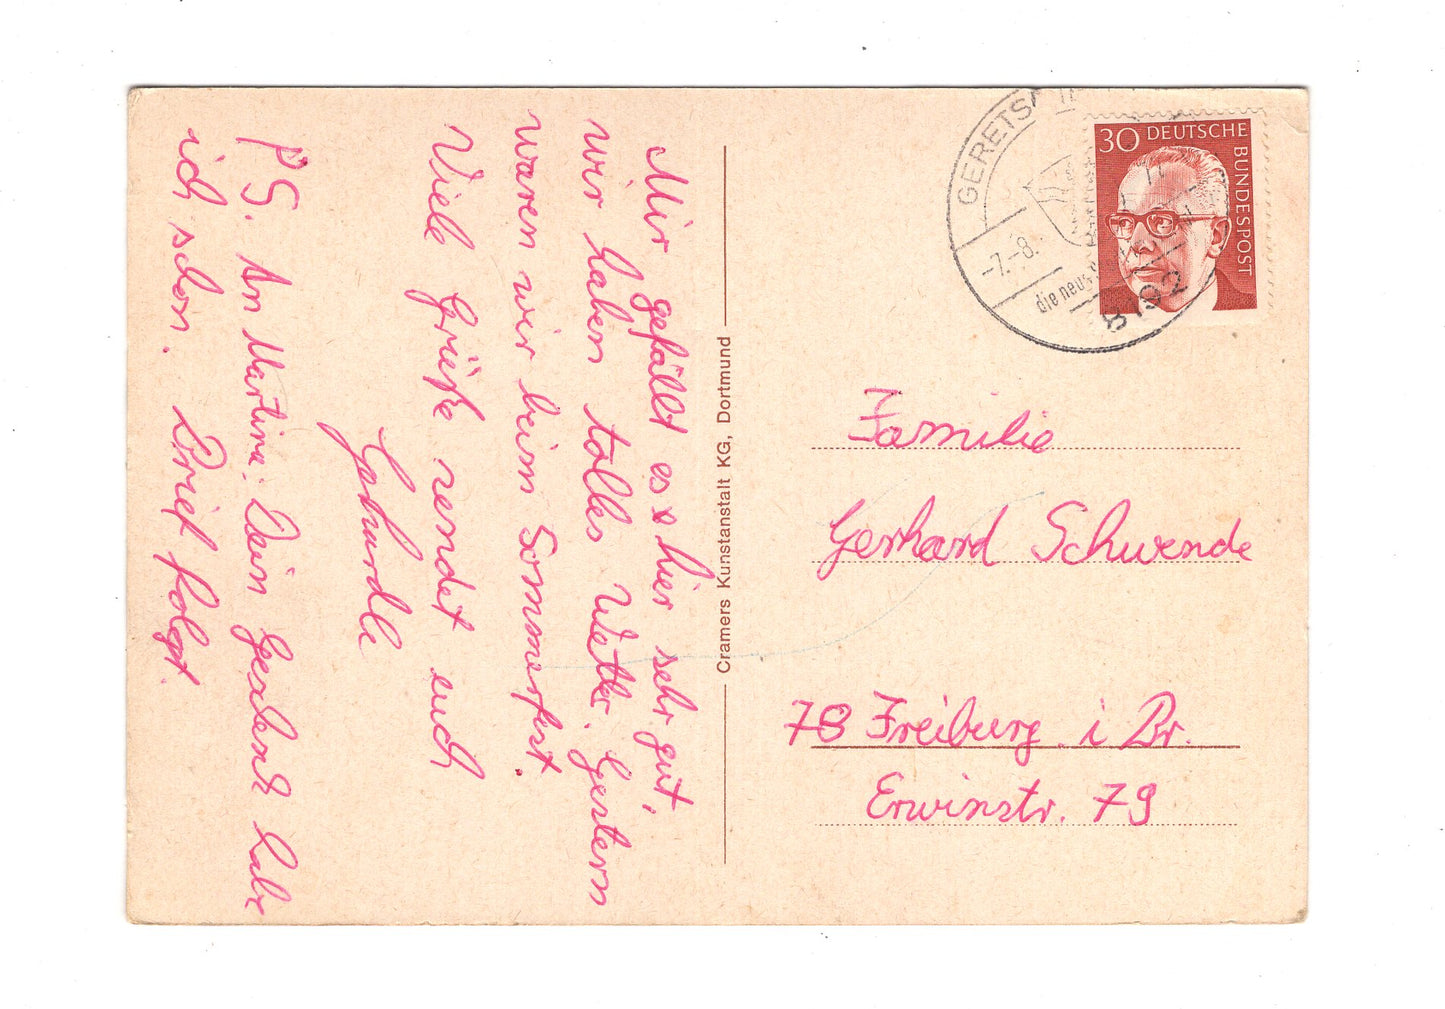 Mir gefällt es hier sehr gut,
wir haben tolles Wetter. Gestern
waren wir beim Sommerfest.
Viele Grüße sendet euch
PS. An Martina: Dein Geschenk habe
ich schon. Brief folgt.
Cramers Kunstanstalt KG, Dortmund
GERETS
-7.-8.
die neue
8192
30 DEUTSCHE
BUNDESPOST
Familie
Gerhard Schwende
78 Freiburg i Br.
Erwinstr. 79